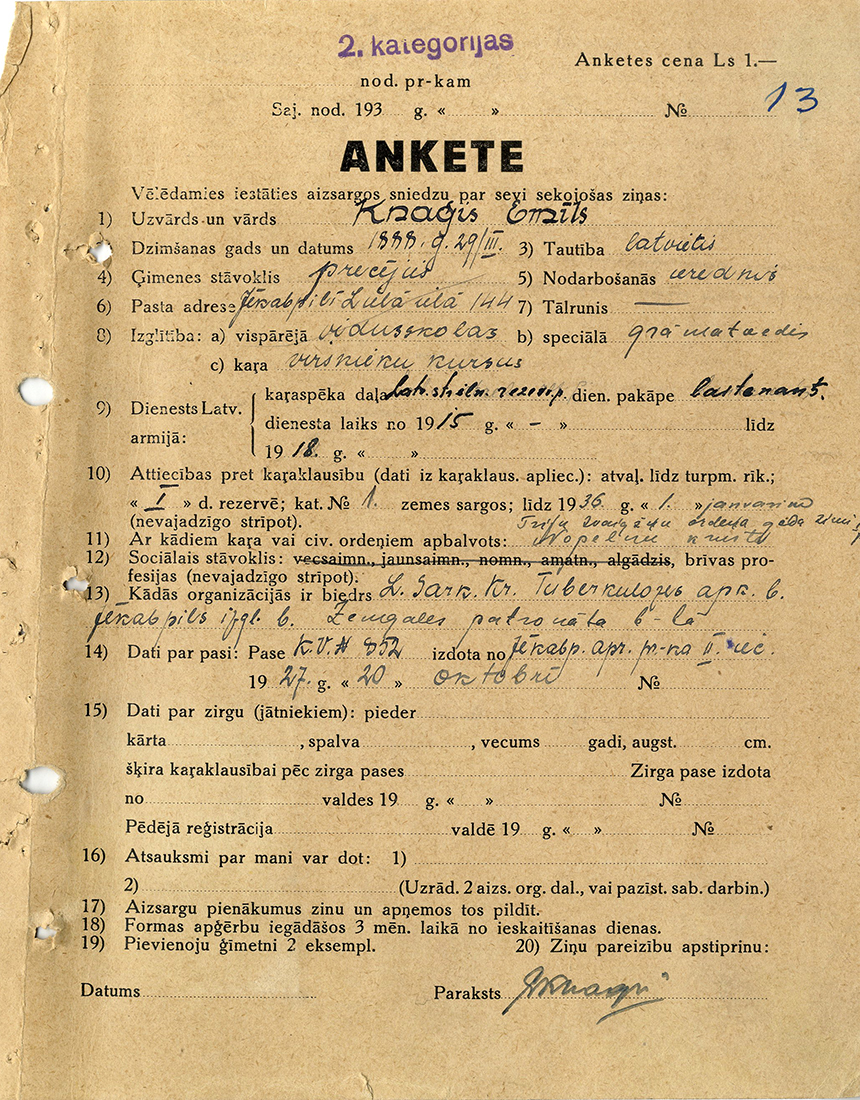 2. kategorijas
Anketes cena Ls 1.—
nod. pr-kam
Saj. nod. 193 g. « » № 13
ANKETE
Vēlēdamies iestāties aizsargos sniedzu par sevi sekojošas ziņas:
1) Uzvārds un vārds Knaģis Emīls
Dzimšanas gads un datums 1888. g. 29/III. 3) Tautība latvietis
4) Ģimenes stāvoklis precējus 5) Nodarbošanās ierednis
6) Pasta adrese Jēkabpilī Lielā ielā 144 7) Tālrunis —
8) Izglītība: a) vispārējā vidusskolas b) speciālā grāmatvedis
c) kaŗa virsnieku kursus
9) Dienests Latv. armijā: kaŗaspēka daļa Latv. strēln. rezerv. p. dien. pakāpe leitenants.
dienesta laiks no 1915 g. « – » līdz
1918. g. « »
10) Attiecības pret kaŗaklausību (dati iz kaŗaklaus. apliec.): atvaļ. līdz turpm. rīk.;
« I » d. rezervē; kat. № 1. zemes sargos; līdz 1936 g. « 1. » janvarim
(nevajadzīgo strīpot). Triju zvaigžņu ordeņa goda zīmi,
11) Ar kādiem kaŗa vai civ. ordeņiem apbalvots: Nopelnu krustu
12) Sociālais stāvoklis: vecsaimn., jaunsaimn., nomn., amatn., algādzis, brīvas pro-
fesijas (nevajadzīgo strīpot).
13) Kādās organizācijās ir biedrs L. Sark. Kr. Tuberkulozes apk. b.
Jēkabpils izgl. b. Zemgales patronāta b-lā
14) Dati par pasi: Pase K.V.N 852 izdota no Jēkabp. apr. pr-ka II. iec.
1927. g. « 20 » oktobrī №
15) Dati par zirgu (jātniekiem): pieder
kārta , spalva , vecums gadi, augst. cm.
šķira kaŗaklausībai pēc zirga pases Zirga pase izdota
no valdes 19 g. « » №
Pēdējā reģistrācija valdē 19 g. « » №
16) Atsauksmi par mani var dot: 1)
2) (Uzrād. 2 aizs. org. dal., vai pazīst. sab. darbin.)
17) Aizsargu pienākumus zinu un apņemos tos pildīt.
18) Formas apģērbu iegādāšos 3 mēn. laikā no ieskaitīšanas dienas.
19) Pievienoju ģīmetni 2 eksempl. 20) Ziņu pareizību apstiprinu:
Datums Paraksts EKnaģis